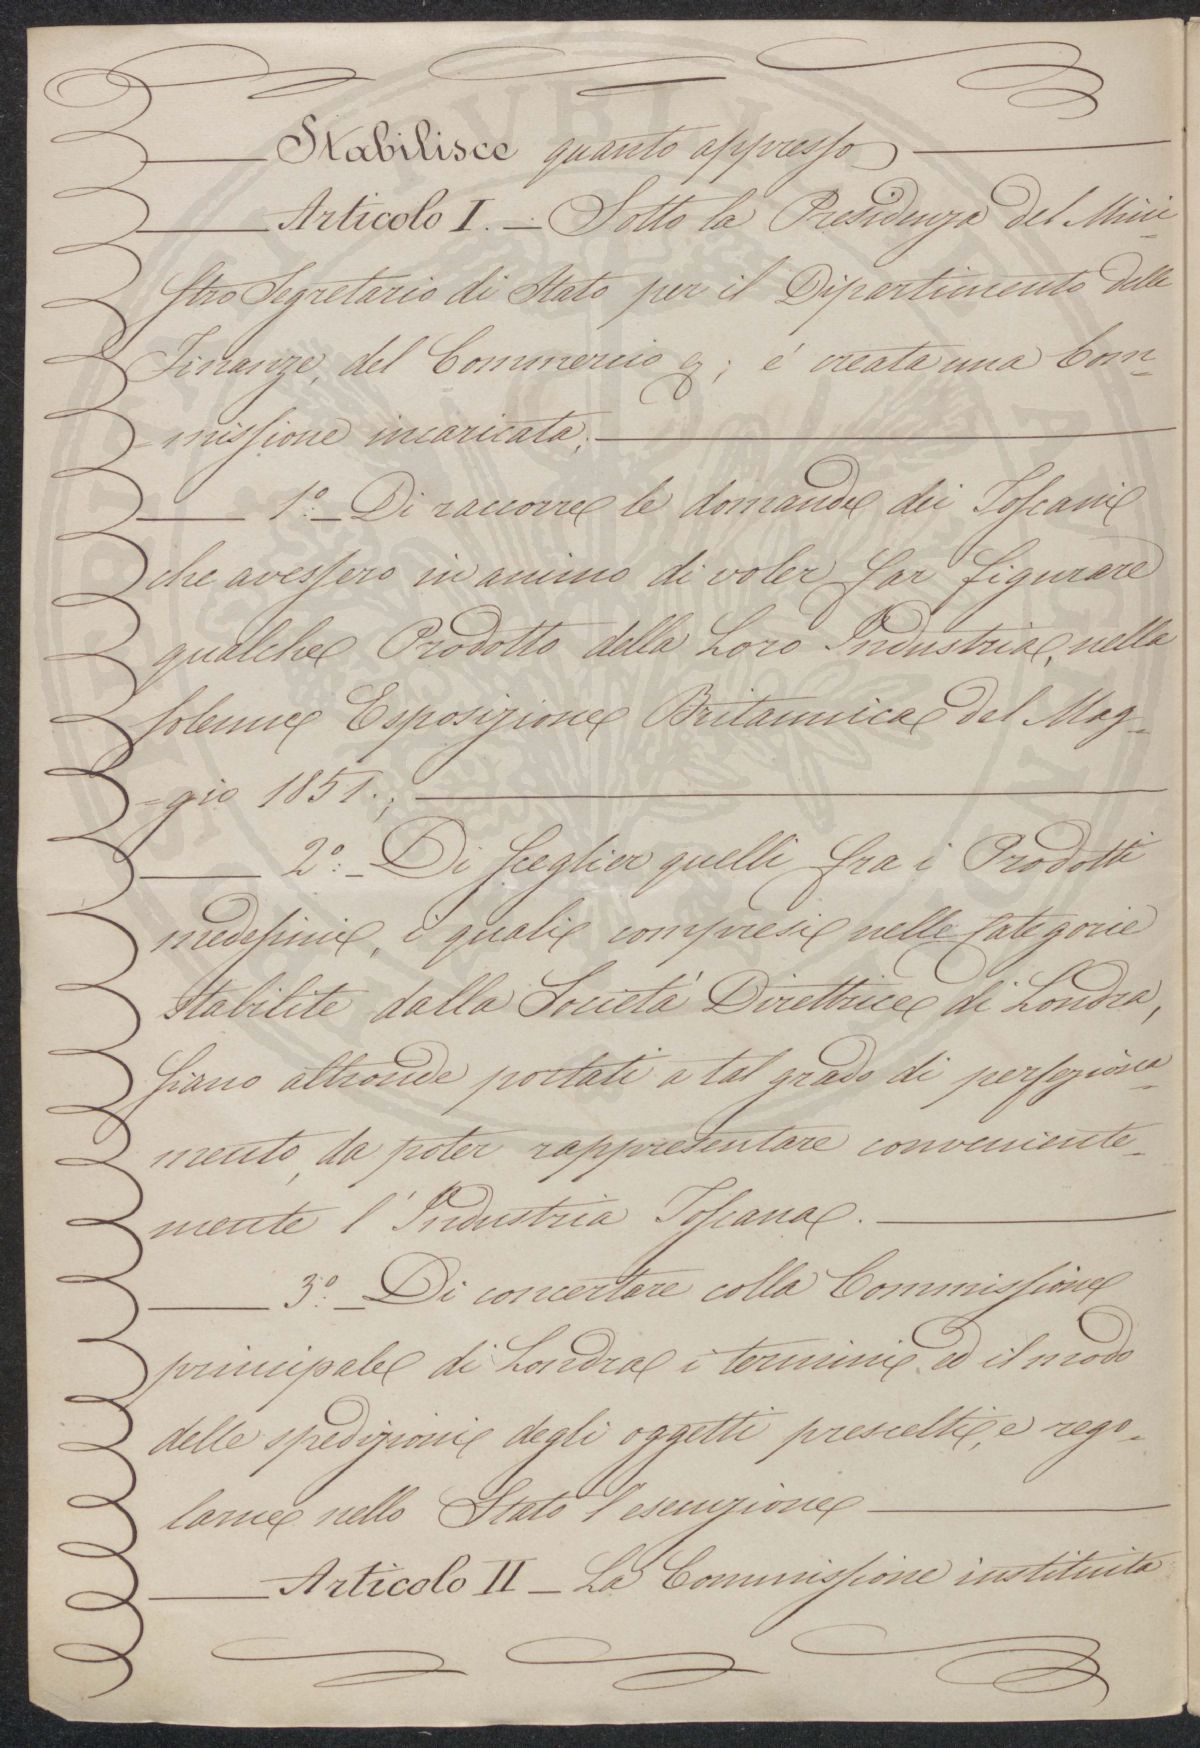 Stabilisce quanto appresso
Articolo I. – Sotto la Presidenza del Mini-
stro Segretario di Stato per il Dipartimento delle
Finanze, del Commercio &; é creata una Com-
missione incaricata;
1.º – Di raccorre le domande dei Toscani
che avessero in animo di voler far figurare
qualche Prodotto della Loro Industria, nella
solenne Esposizione Britannica del Mag-
-gio 1851.;
2.º – Di sceglier quelli fra i Prodotti
medesimi, i quali compresi nelle Categorie
stabilite dalla Società Direttrice di Londra,
siano altronde portati a tal grado di perfeziona-
mento, da poter rappresentare conveniente-
mente l'Industria Toscana.
3.º – Di concertare colla Commissione
principale di Londra i termini ed il modo
delle spedizioni degli oggetti prescelti, e rego-
larne nello Stato l'esecuzione
Articolo II – La Commissione instituita